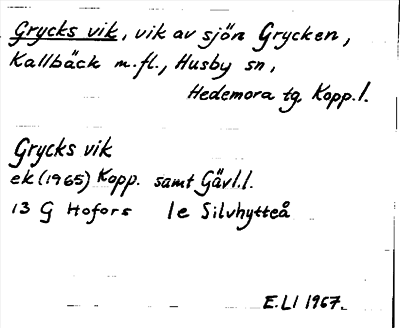 Grycks vik, vik av sjön Grycken,
Kallbäck m.fl., Husby sn,
Hedemora tg, Kopp.l.
Grycks vik
ek (1965) Kopp. samt Gävl.l.
13 G Hofors 1e Silvhytteå
E.LI 1967.